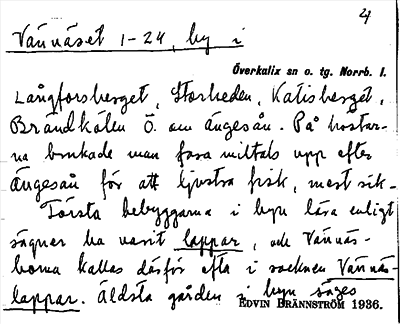 4
Vännäset 1-24, by i
Överkalix sn o. tg. Norrb. l.
Långforsberget, Storheden, Katisberget,
Brändkölen Ö. om Ängesån. På höstar-
na brukade man fara miltals upp efter
Ängesån för att ljustra fisk, mest sik. -
Första bebyggarna i byn lära enligt
sägner ha varit lappar, och Vännäs-
borna kallas därför ofta i socknen Vännäs-
lappar. Äldsta gården i byn säges
EDVIN BRÄNNSTRÖM 1936.